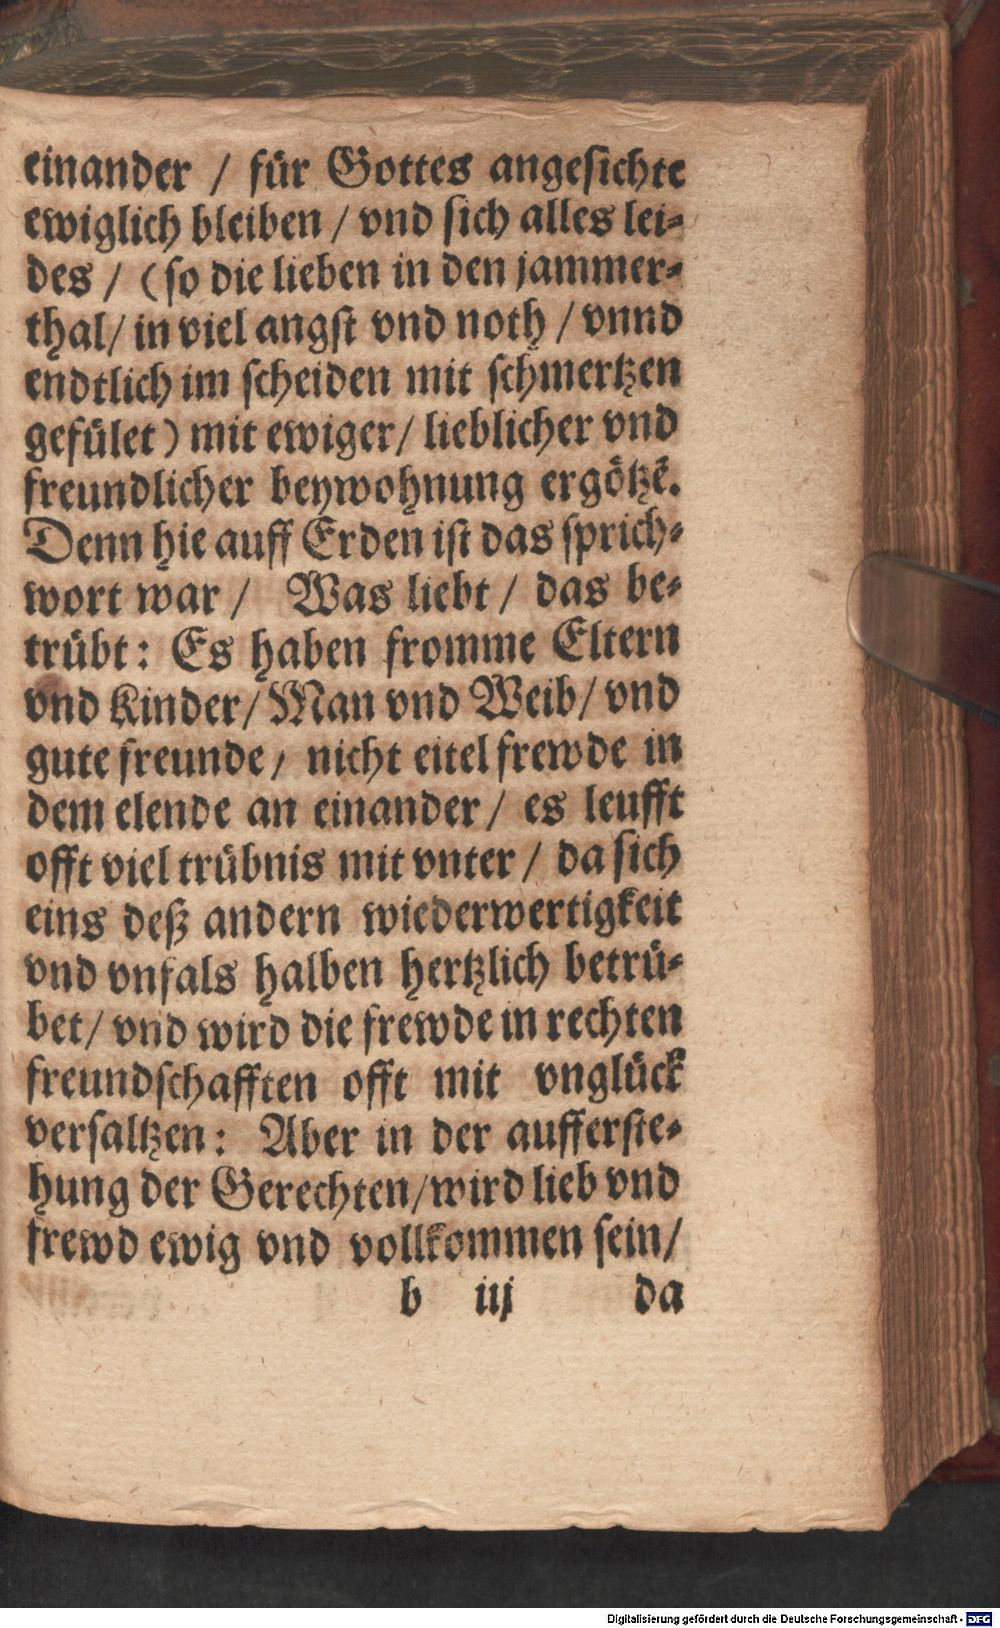 einander / für Gottes angesichte
ewiglich bleiben / vnd sich alles lei-
des / (so die lieben in den jammer-
thal / in viel angst vnd noth / vnnd
endtlich im scheiden mit schmertzen
gefület) mit ewiger / lieblicher vnd
freundlicher beywohnung ergötzē.
Denn hie auff Erden ist das sprich-
wort war / Was liebt / das be-
trübt: Es haben fromme Eltern
vnd Kinder / Man vnd Weib / vnd
gute freunde / nicht eitel frewde in
dem elende an einander / es leufft
offt viel trübnis mit vnter / da sich
eins deß andern wiederwertigkeit
vnd vnfals halben hertzlich betrü-
bet / vnd wird die frewde in rechten
freundschafften offt mit vnglück
versaltzen: Aber in der aufferste-
hung der Gerechten / wird lieb vnd
frewd ewig vnd vollkommen sein /
b iij da
Digitalisierung gefördert durch die Deutsche Forschungsgemeinschaft - DFG